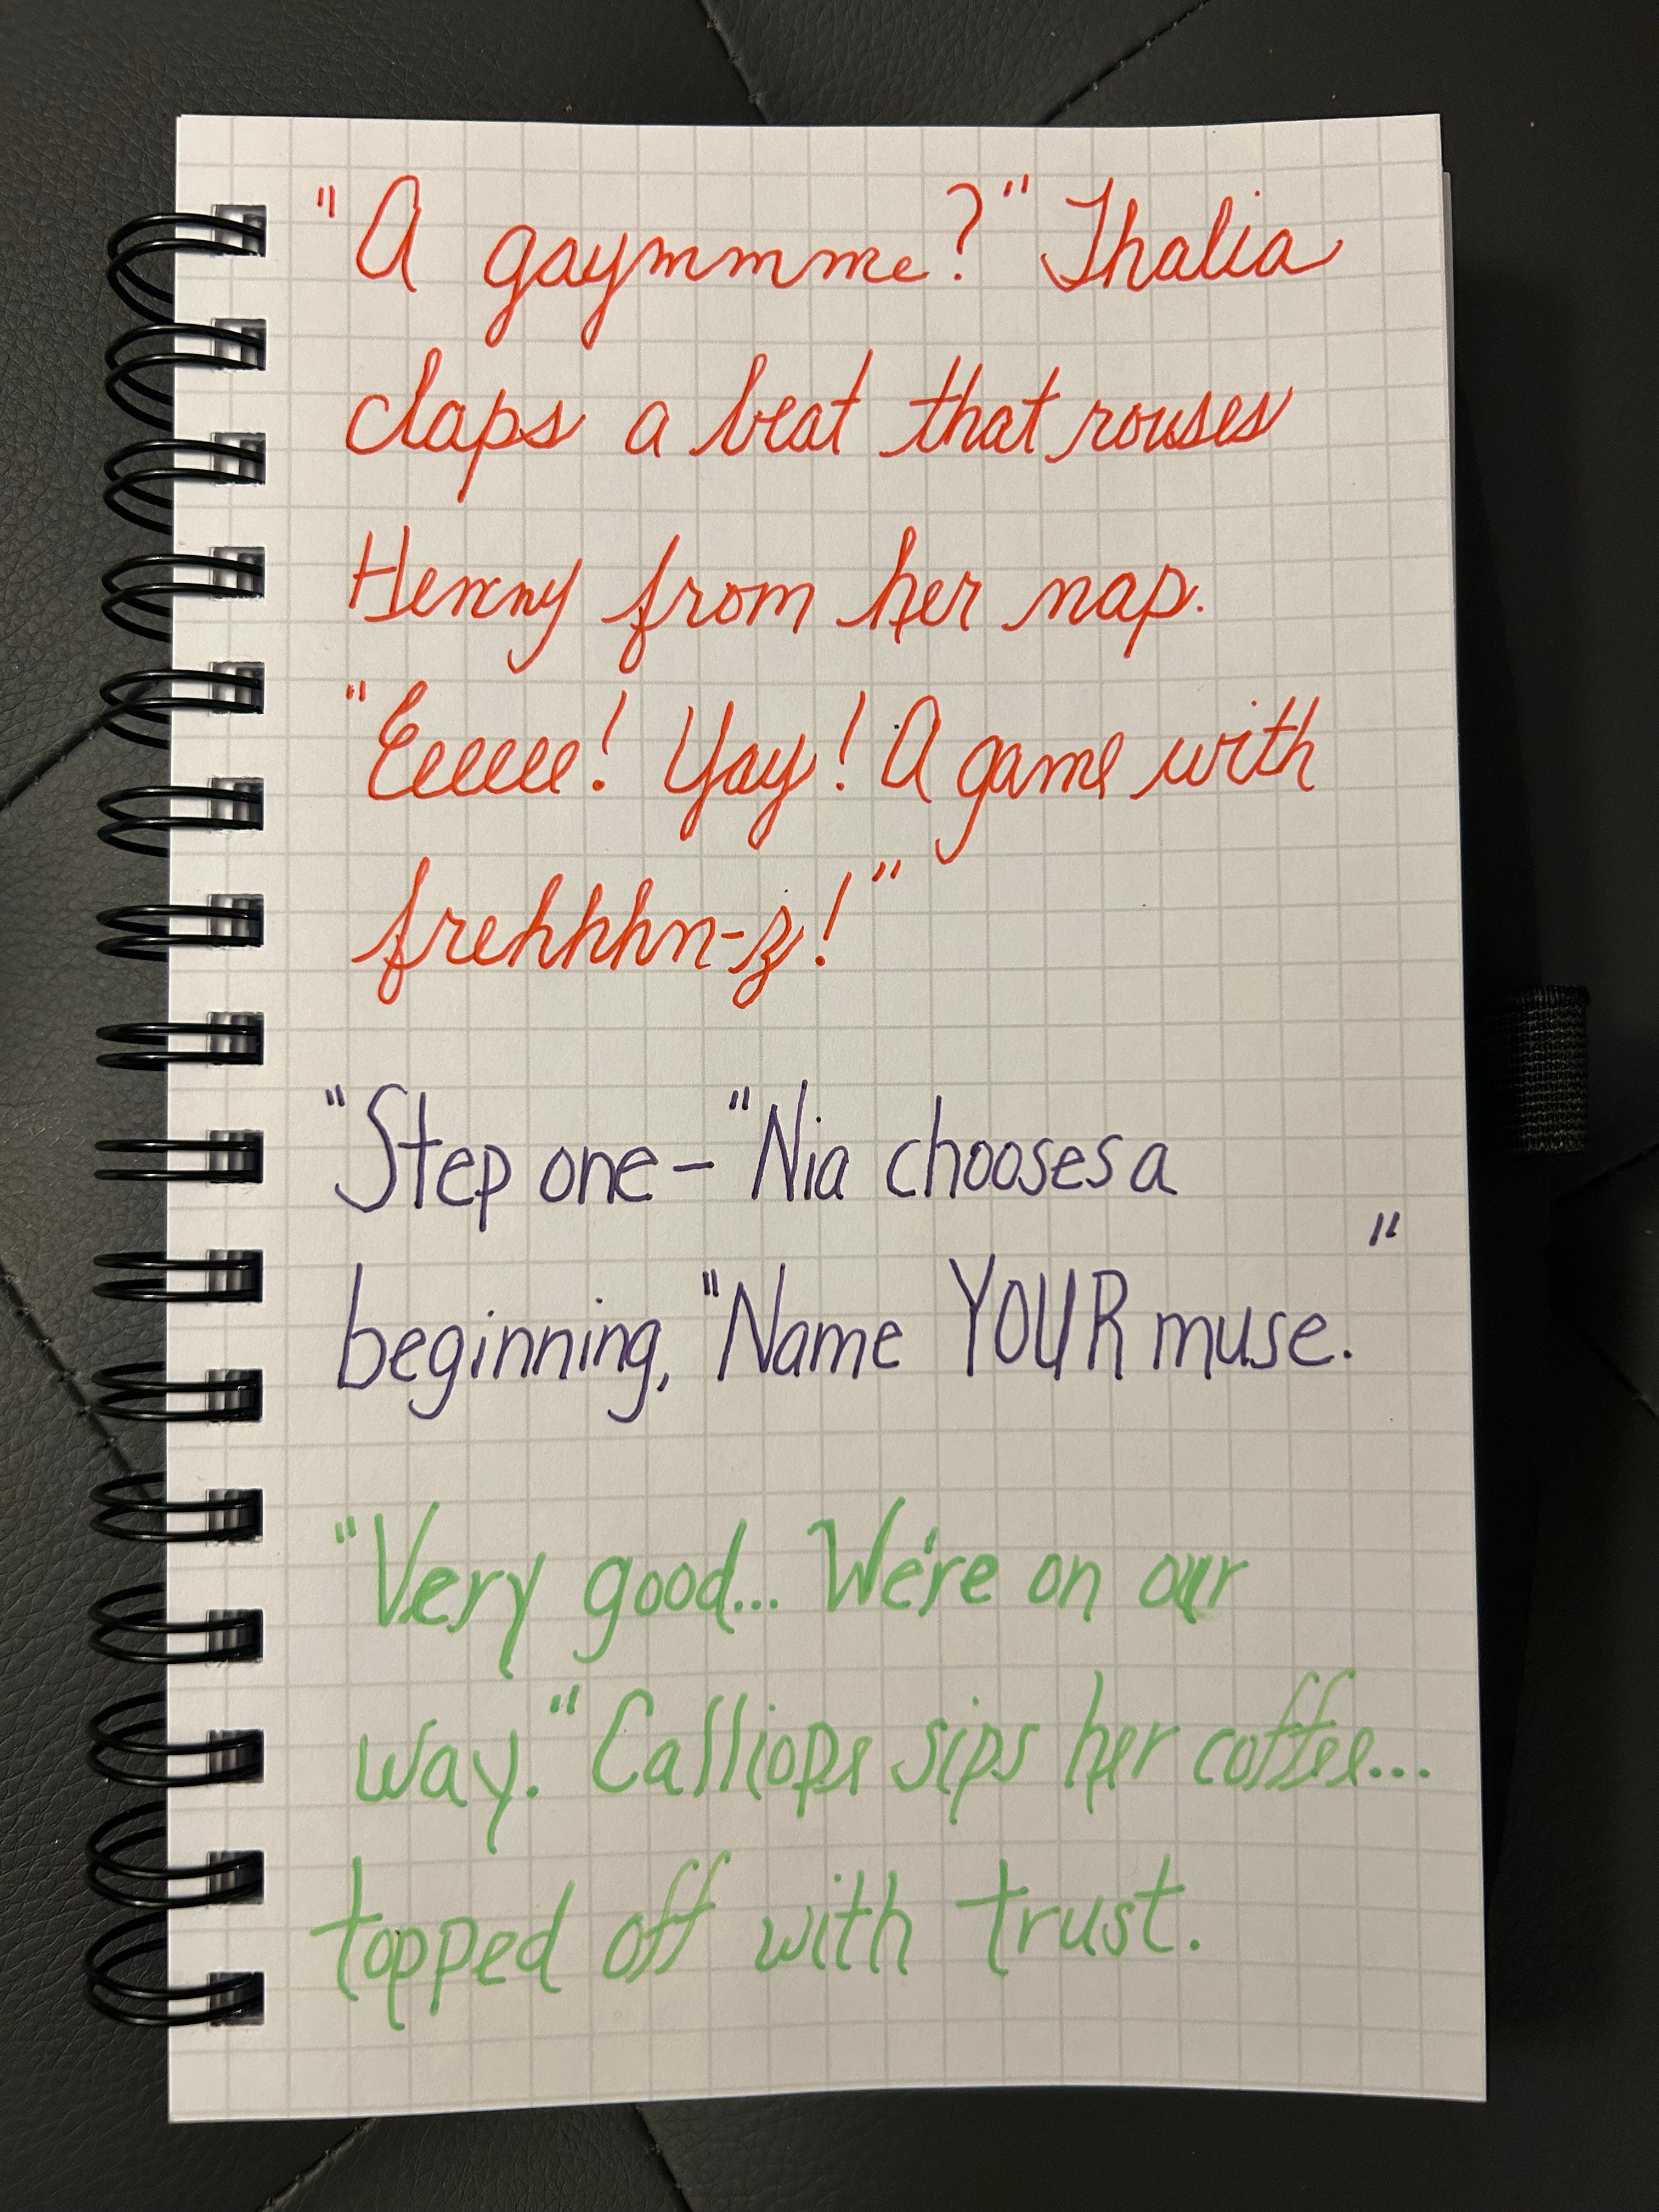 "A gaymmme?" Thalia
claps a beat that rouses
Henny from her nap.
"Eeeeee! Yay! A game with
frehhhn-z!"
"Step one – "Nia chooses a
beginning, "Name YOUR muse."
"Very good... We're on our
way." Calliope sips her coffee...
topped off with trust.